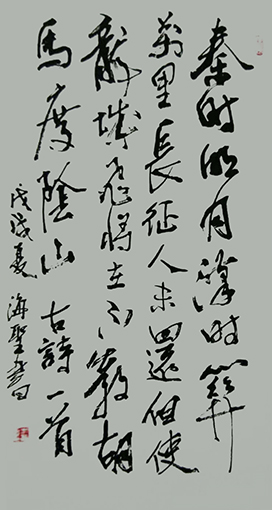 秦時明月漢時關
萬里長征人未還但使
龍城飛將在不教胡
馬度陰山 古詩一首
戊戌夏 海聖書